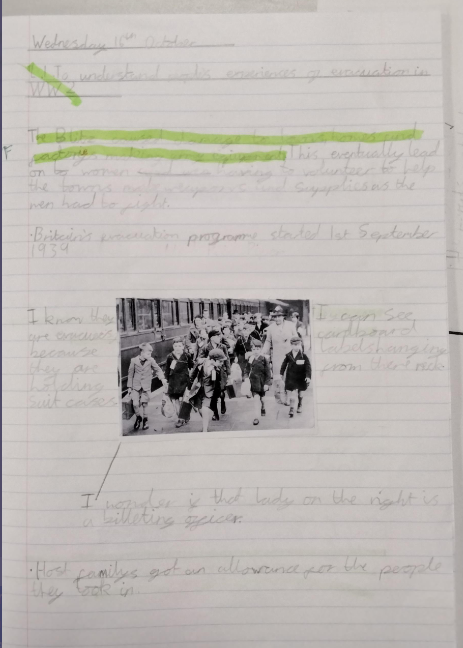 Wednesday 16th October
To understand people's experiences of evacuation in
WW2
The B
This eventually lead
on to women having to volunteer to help
the and supplies as the
men had to fight.
· Britain's evacuation programe started 1st September
1939
I know they
are evacuees
because
they are
holding
suit cases
I can see
cardboard
labels hanging
from their neck
I wonder if that lady on the right is
a billeting officer.
· Host families got an allowance for the people
they took in.
F